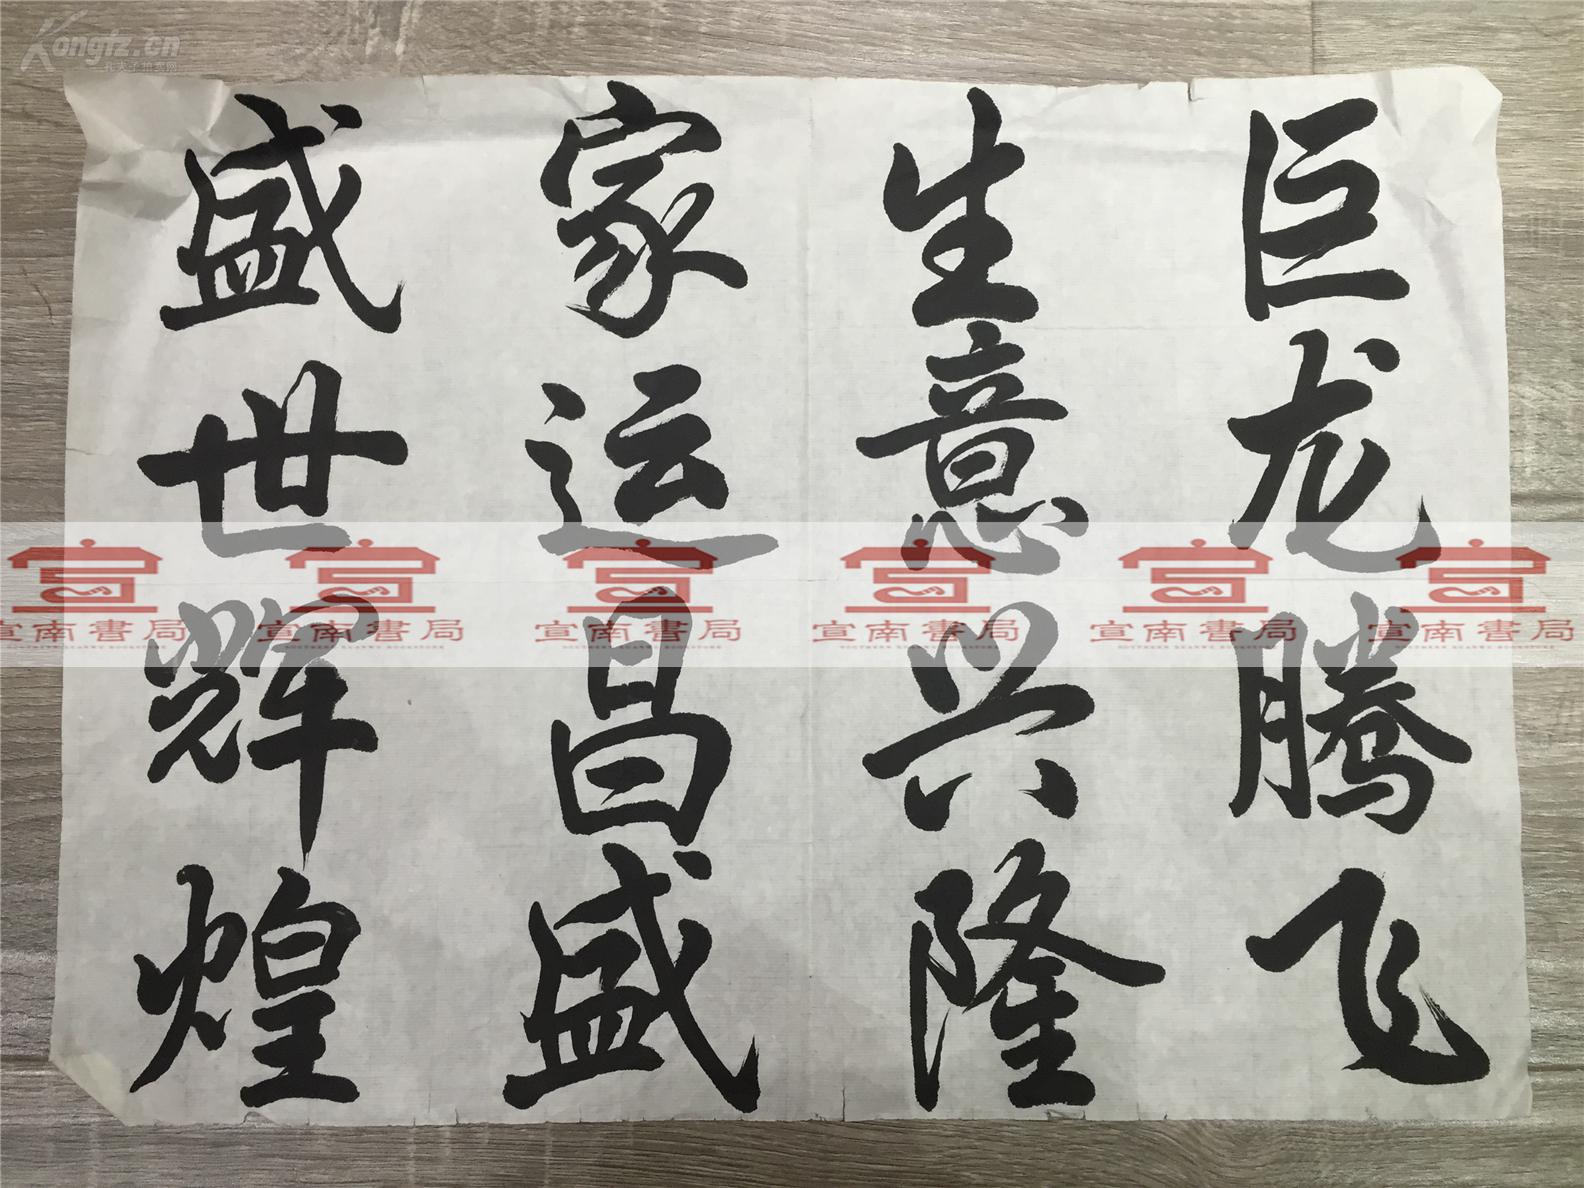 巨龙腾飞
生意兴隆
家运昌盛
盛世辉煌
Kongfz.cn
孔夫子拍卖网
宣南書局
宣南書局
宣南書局
宣南書局
宣南書局
宣南書局